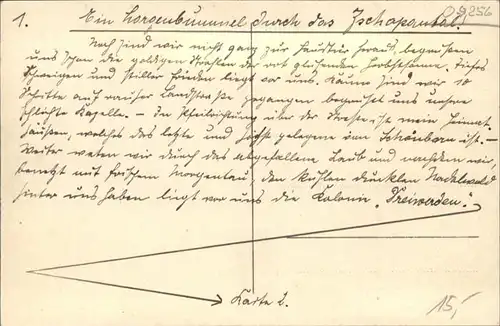 1. Ein Morgenbummel durch das Zschopautal! D9256
Noch sind wir nicht ganz zur Haustür heraus, begrüssen
uns schon die goldigen Strahlen der rot gleißenden Herbstsonne. Tiefes
Schweigen und stiller Frieden liegt vor uns. Kaum sind wir 10
Schritte auf rauher Landstraße gegangen begrüßt uns unsere
schlichte Kapelle. – In Pfeilrichtung über der Strasse ist mein Heimat-
häuschen, welches das letzte und höchst gelegene von Schönborn ist. –
Weiter waten wir durch das abgefallene Laub und nachdem wir,
benetzt mit frischem Morgentau, den kühlen dunklen Nadelwald
hinter uns haben liegt vor uns die Kolonie „Dreiwerden“.
Karte 2.
15,-